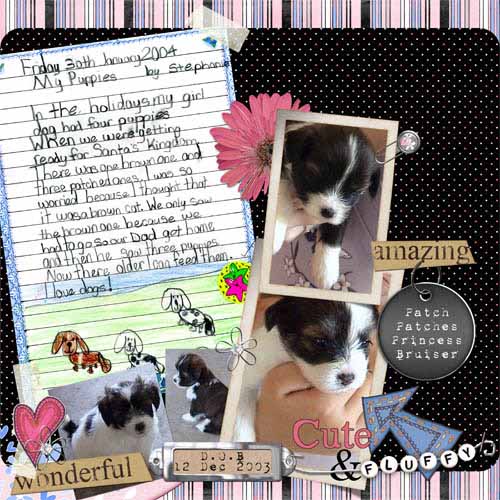 Friday 30th January 2004
My Puppies by Stephanie
In the holidays my girl
dog had four puppies
When we were getting
ready for Santa's Kingdom
There was one brown one and
three patched ones. I was so
worried because I thought that
it was a brown cat. We only saw
the brown one because we
had to go so our Dad got home
and then he saw three puppies.
Now there older I can feed them.
I love dogs!
amazing
Patch
Patches
Princess
Bruiser
Cute
& FLUFFY
wonderful
D.O.B
12 Dec 2003